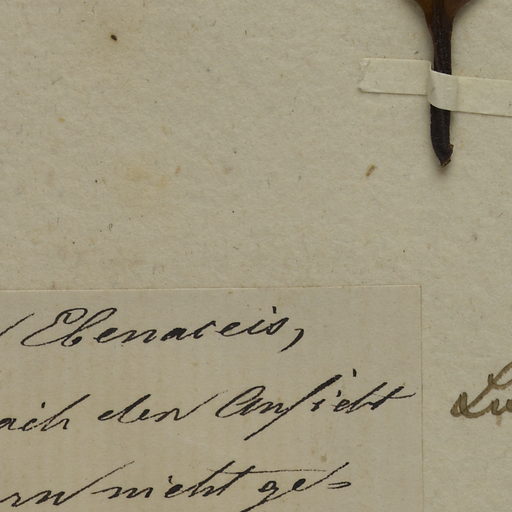 Ebenaceis,
nach den Ansicht
Lu
rn nicht ge-